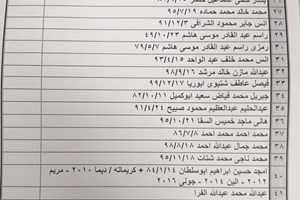 محمد خالد محمد حماده ٩٥/٧/١٩
٢٨ انس جابر محمود الشرافي ٩١/١٢/٣
٢٩ راسم عبد القادر موسى هاشم ٤٩/١٠/٢٣
٣٠ رمزي راسم عبد القادر موسى هاشم ٧٩/٥/٧
٣١ انس محمد خلف عبد الواحد ٩٣/٤/١٥
٣٢ عبدالله مازن خالد مرشد ٩٨/٩/١٦
٣٣ فيصل عاطف شتيوي ابوريا ٩٩/١٢/١٧
٣٤ جبريل محمد فياض سعيد ابوكميل ٨٢/١٠/١
٣٥ عبدالحليم عبدالعظيم محمود صبيح ٩١/٤/٢٤
٣٦ هاني ماجد خميس السقا ٩٥/١٠/٢١
٣٧ محمد احمد محمد احمد ٨٦/٧/٨
٣٨ محمد جمال عبدالله احمد ٩٨/٨/١٨
٣٩ محمد ناجي محمد شتات ٩٥/١١/١٨
٤٠ امجد حسين ابراهيم ابوسلطان ٨٤/١/١٤ + كريماته / ديما ٢٠١٠ - مريم
٢٠١٢ - الين ٢٠١٤ - جولي ٢٠١٦
٤١ محمد عبدالله عبدالله الفرا